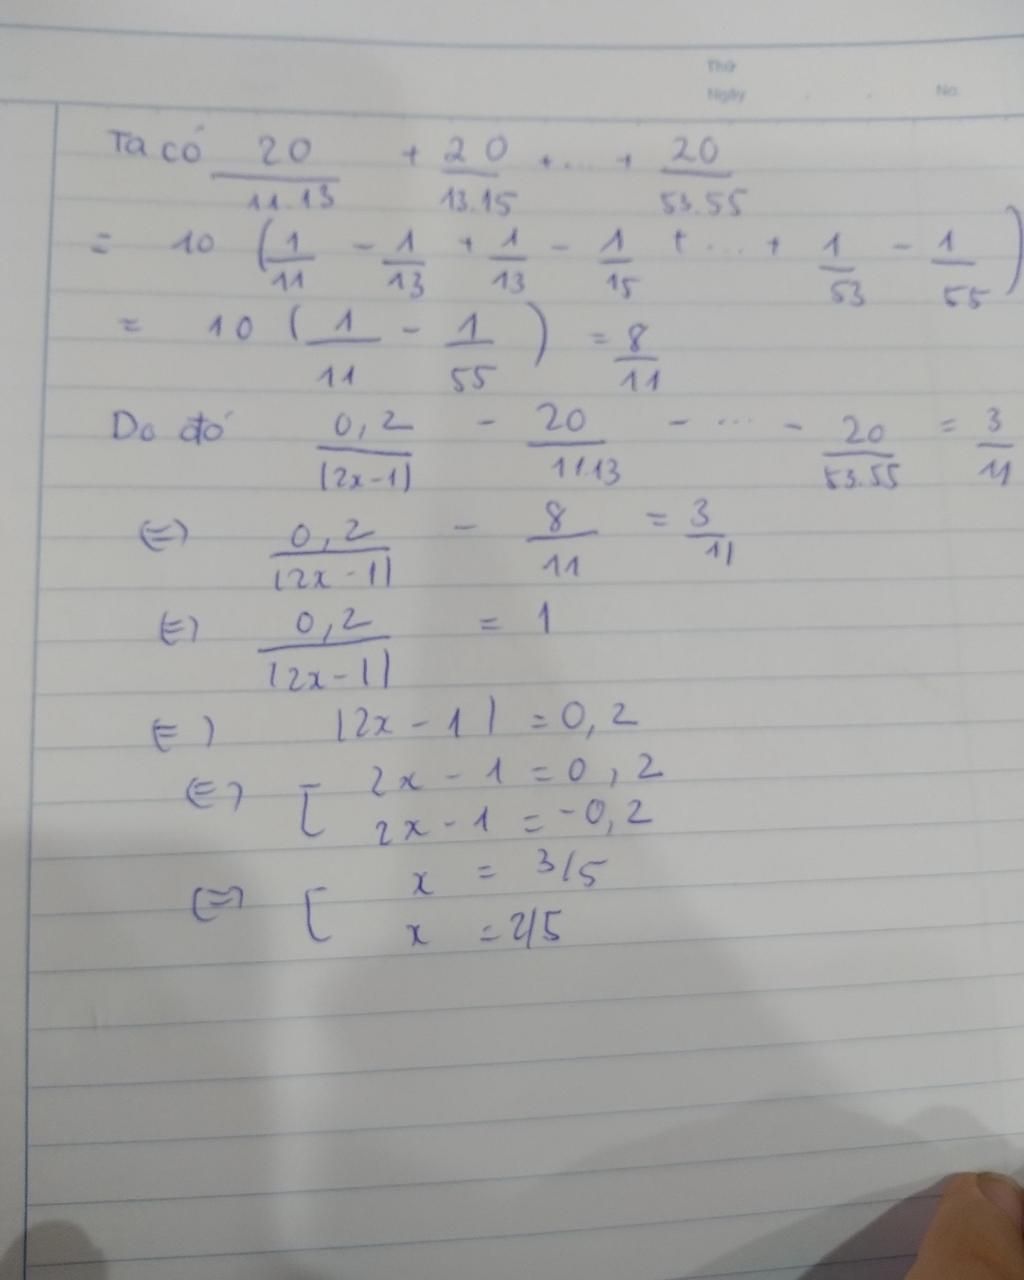 Thứ
Ngày . . No.
Ta có 20/11.13 + 20/13.15 + ... + 20/53.55
= 10 (1/11 - 1/13 + 1/13 - 1/15 + ... + 1/53 - 1/55)
= 10 (1/11 - 1/55) = 8/11
Do đó 0,2/|2x-1| - 20/11.13 - ... - 20/53.55 = 3/11
(=) 0,2/|2x-1| - 8/11 = 3/11
(=) 0,2/|2x-1| = 1
(=) |2x-1| = 0,2
(=) [ 2x-1 = 0,2
2x-1 = -0,2
(=) [ x = 3/5
x = 2/5